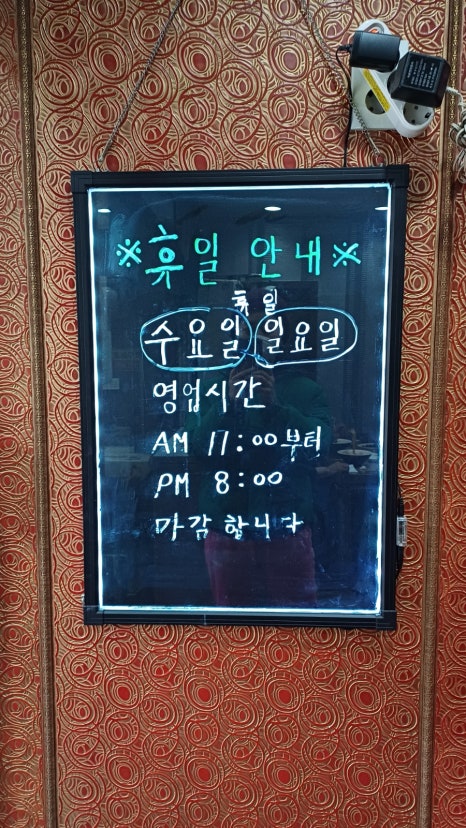 ※휴일 안내※
휴일
수요일 일요일
영업시간
AM 11:00부터
PM 8:00
마감합니다